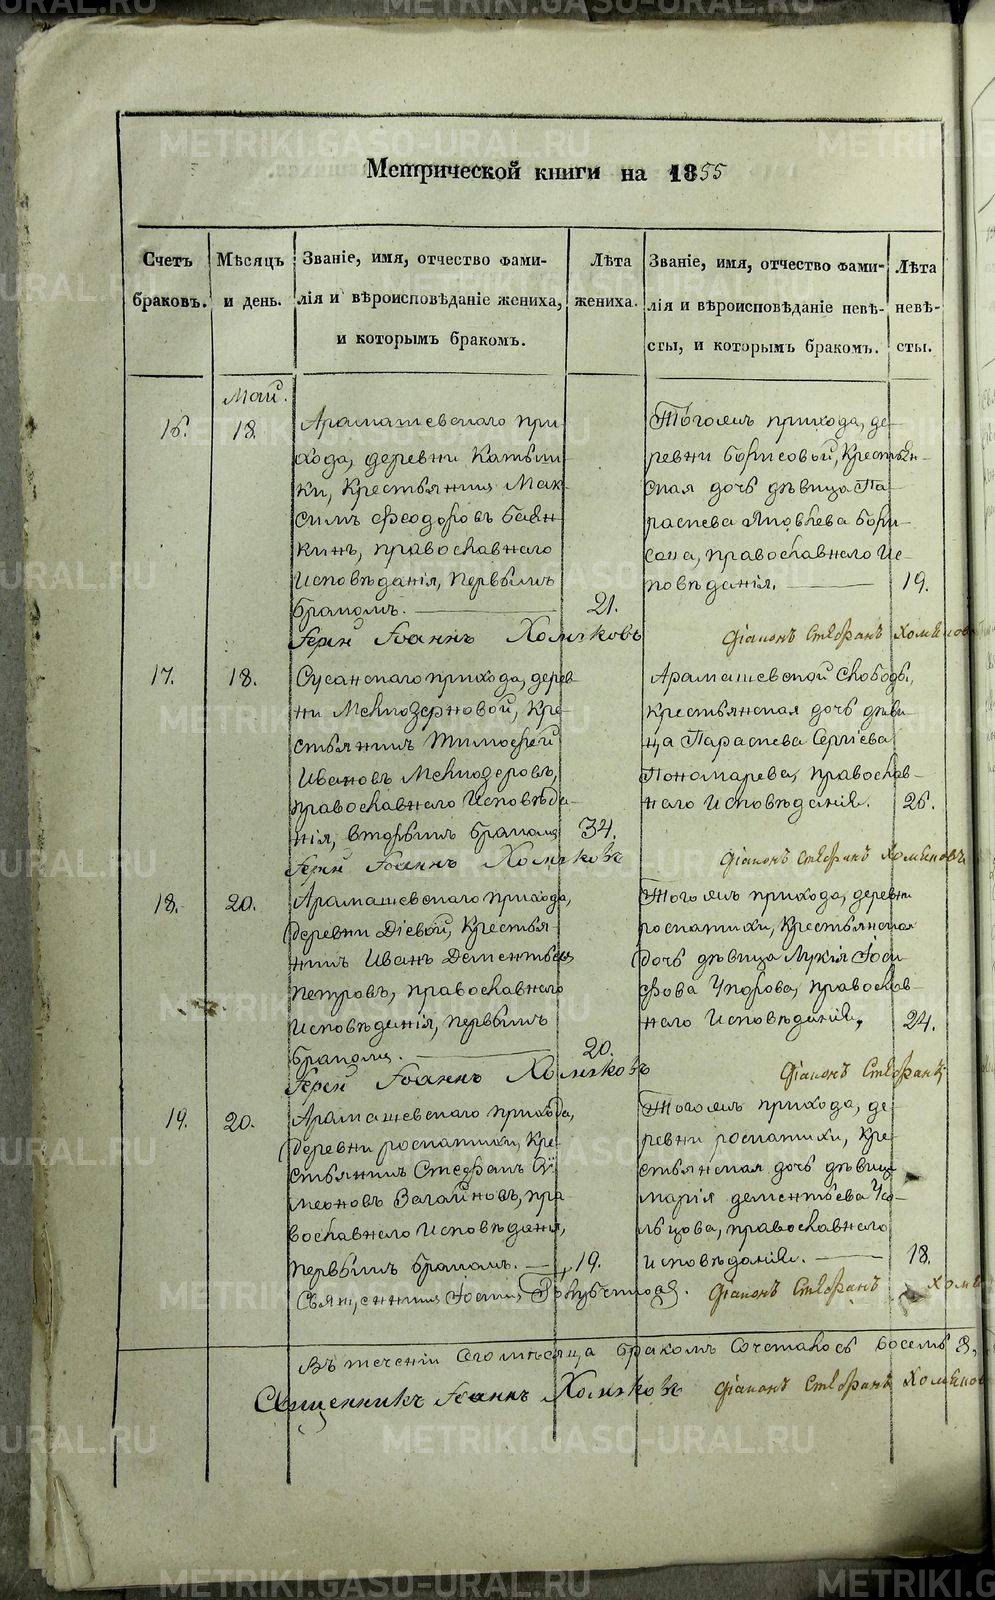 METRIKI.GASO-URAL.RU
Метрической книги на 1855
Счетъ браковъ.
Мѣсяцъ и день.
Званіе, имя, отчество фами-
лія и вѣроисповѣданіе жениха,
и которымъ бракомъ.
Лѣта жениха.
Званіе, имя, отчество фами-
лія и вѣроисповѣданіе невѣ-
сты, и которымъ бракомъ.
Лѣта невѣ-
сты.
Май.
16.
18.
Арамашевскаго при
хода, деревни
ки, Крестьянинъ Мак-
симъ Феодоровъ
кинъ, православнаго
Исповѣданія, первымъ
бракомъ.
21.
Тогожъ прихода, де-
ревни Борисовой, Крестьян-
ская дочь дѣвица Па-
раскева Яковлева Бори-
сова, православнаго Ис-
повѣданія.
19.
Іерей Іоаннъ Хомяковъ
Діаконъ Стефанъ Хомяковъ
17.
18.
Сусанскаго прихода, дерев
ни Мелкозерновой, Кре-
стьянинъ Тимофей
Ивановъ Мелкозеровъ,
православнаго Исповѣда-
нія, вторымъ бракомъ
34.
Арамашевской Слободы,
крестьянская дочь дѣви-
ца Параскева Сергіева
Пономарева, православ-
наго Исповѣданія.
26.
Іерей Іоаннъ Хомяковъ
Діаконъ Стефанъ Хомяковъ
18.
20.
Арамашевскаго прихода,
деревни Діевой, Крестья-
нинъ Иванъ Дементьевъ
Петровъ, православнаго
Исповѣданія, первымъ
бракомъ.
20.
Тогожъ прихода, деревни
роскатихи, Крестьянская
дочь дѣвица Лукія Іоси-
фова Упорова, православ-
наго Исповѣданія.
24.
Іерей Іоаннъ Хомяковъ
Діаконъ Стефанъ
19.
20.
Арамашевскаго прихода,
деревни роскатихи, Кре-
стьянинъ Стефанъ Си
меоновъ Загайновъ, пра-
вославнаго Исповѣданія,
первымъ бракомъ.
19.
Тогожъ прихода, де-
ревни роскатихи, Кре-
стьянская дочь дѣвица
Марія Дементьева
православнаго
Исповѣданія.
18.
Діаконъ Стефанъ
Въ теченіи сего мѣсяца бракомъ Сочеталось восемь 8,
Священникъ Іоаннъ Хомяковъ Діаконъ Стефанъ Хомяковъ